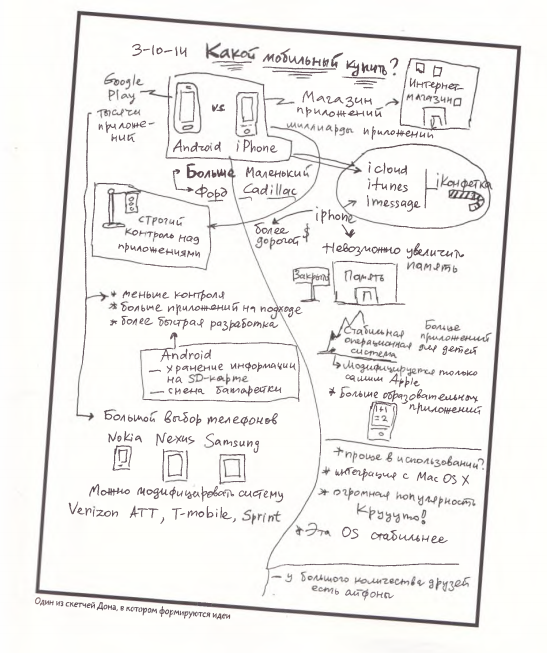 3-10-14 Какой мобильный купить?
Google
Play
тысячи
приложе-
ний
vs
Android iPhone
Магазин
приложений
миллиарды приложений
Интернет-
магазин
Больше Маленький
Форд Cadillac
icloud
itunes
imessage
iконфетка
строгий
контроль над
приложениями
более
дорогой $
iphone
Невозможно увеличить
память
Закрыто
Память
* меньше контроля
* больше приложений на подходе
* более быстрая разработка
Android
— хранение информации
на SD-карте
— смена батарейки
Стабильная
операционная
система
Больше
приложений
для детей
Модифицируется только
самим Apple
* Больше образовательных
приложений
1+1
=2
Большой выбор телефонов
Nokia Nexus Samsung
Можно модифицировать систему
Verizon ATT, T-mobile, Sprint
* проще в использовании?
* интеграция с Mac OS X
* огромная популярность
Крууто!
* Эта OS стабильнее
— у большого количества друзей
есть айфоны
Один из скетчей Дона, в котором формируются идеи